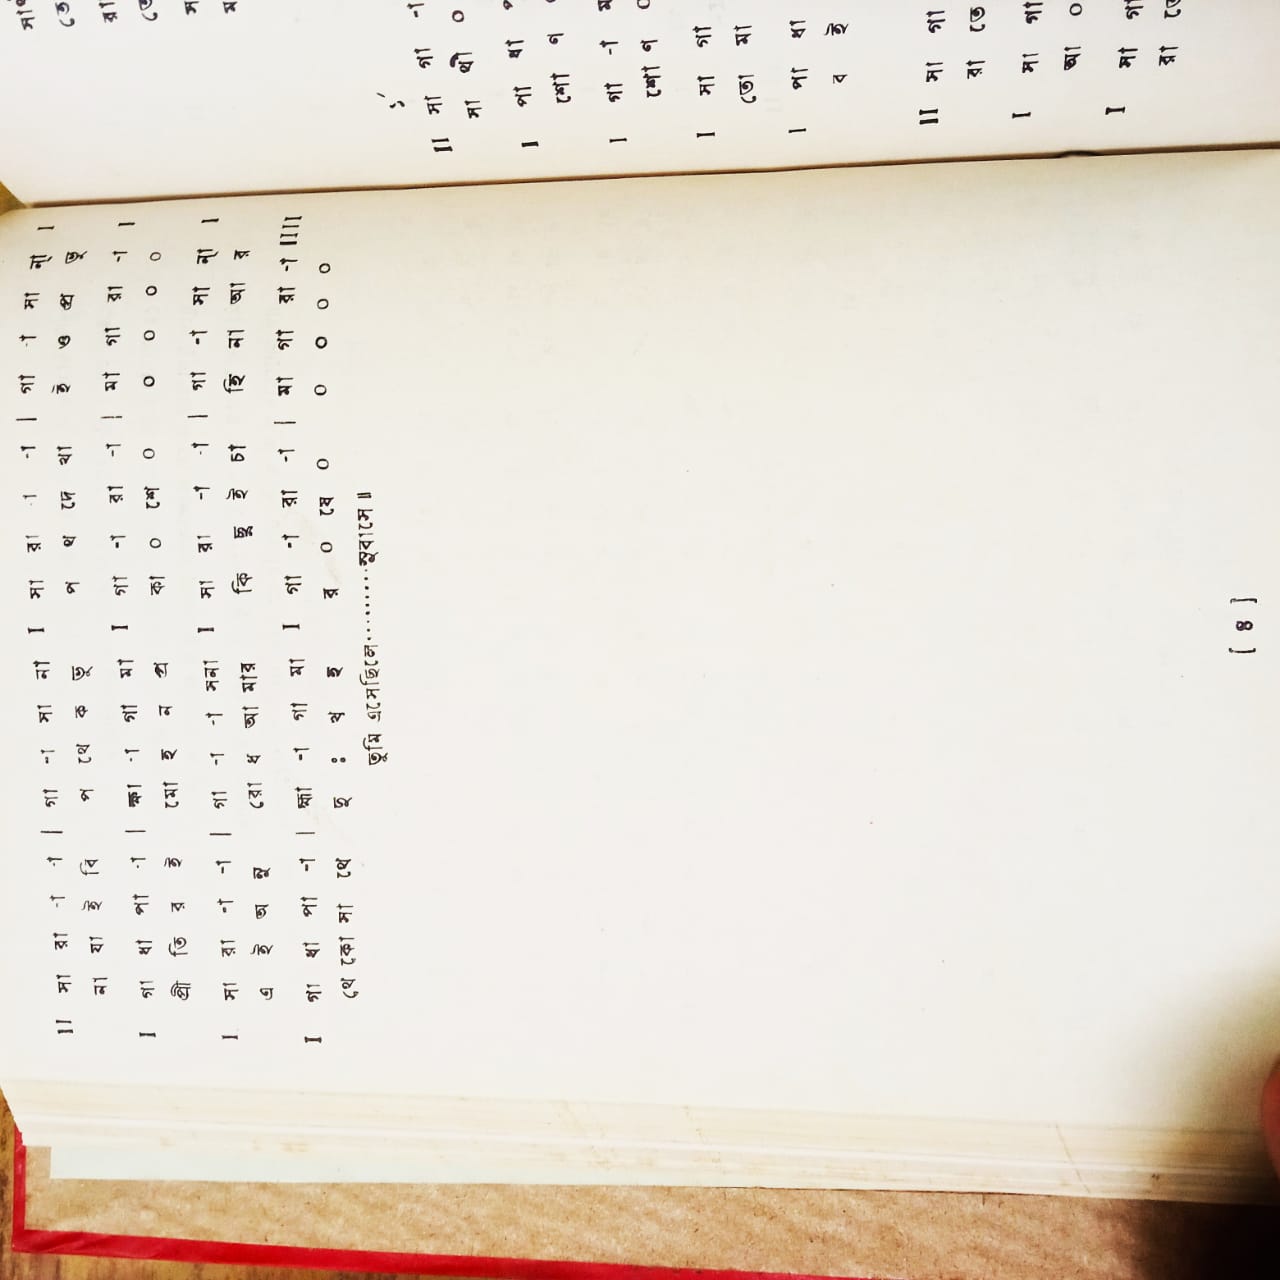 II সা রা -া -া | গা -া সা না I সা রা -া -া | গা -া সা ন্া I
না যা ই বি প থে ক ভু প থ দে খা ই ও প্র ভু
I গা ধা পা -া | হ্মা -া গা মা I গা -া রা -া | মা গা রা -া I
প্রী তি র ই মো হ ন প্র কা ০ শে ০ ০ ০ ০ ০
I সা রা -া -া | গা -া -া সনা I সা রা -া -া | গা -া সা ন্া I
এ ই অ নু রো ধ আ মার কি ছু ই চা হি না আ র
I গা ধা পা -া | হ্মা -া গা মা I গা -া রা -া | মা গা রা -া IIII
থে কো সা থে দু ঃ খ হ র ০ ষে ০ ০ ০ ০ ০
তুমি এসেছিলে.........সুবাসে॥
[ ৪ ]
II সা গা -া
সা থী ০
I পা ধা
শো ণ
I গা -া
শো ণ
I সা গা
তো মা
I পা ধা
ব ই
II সা গা
রা তে
I সা গা
আ ০
I সা গা
রা তে